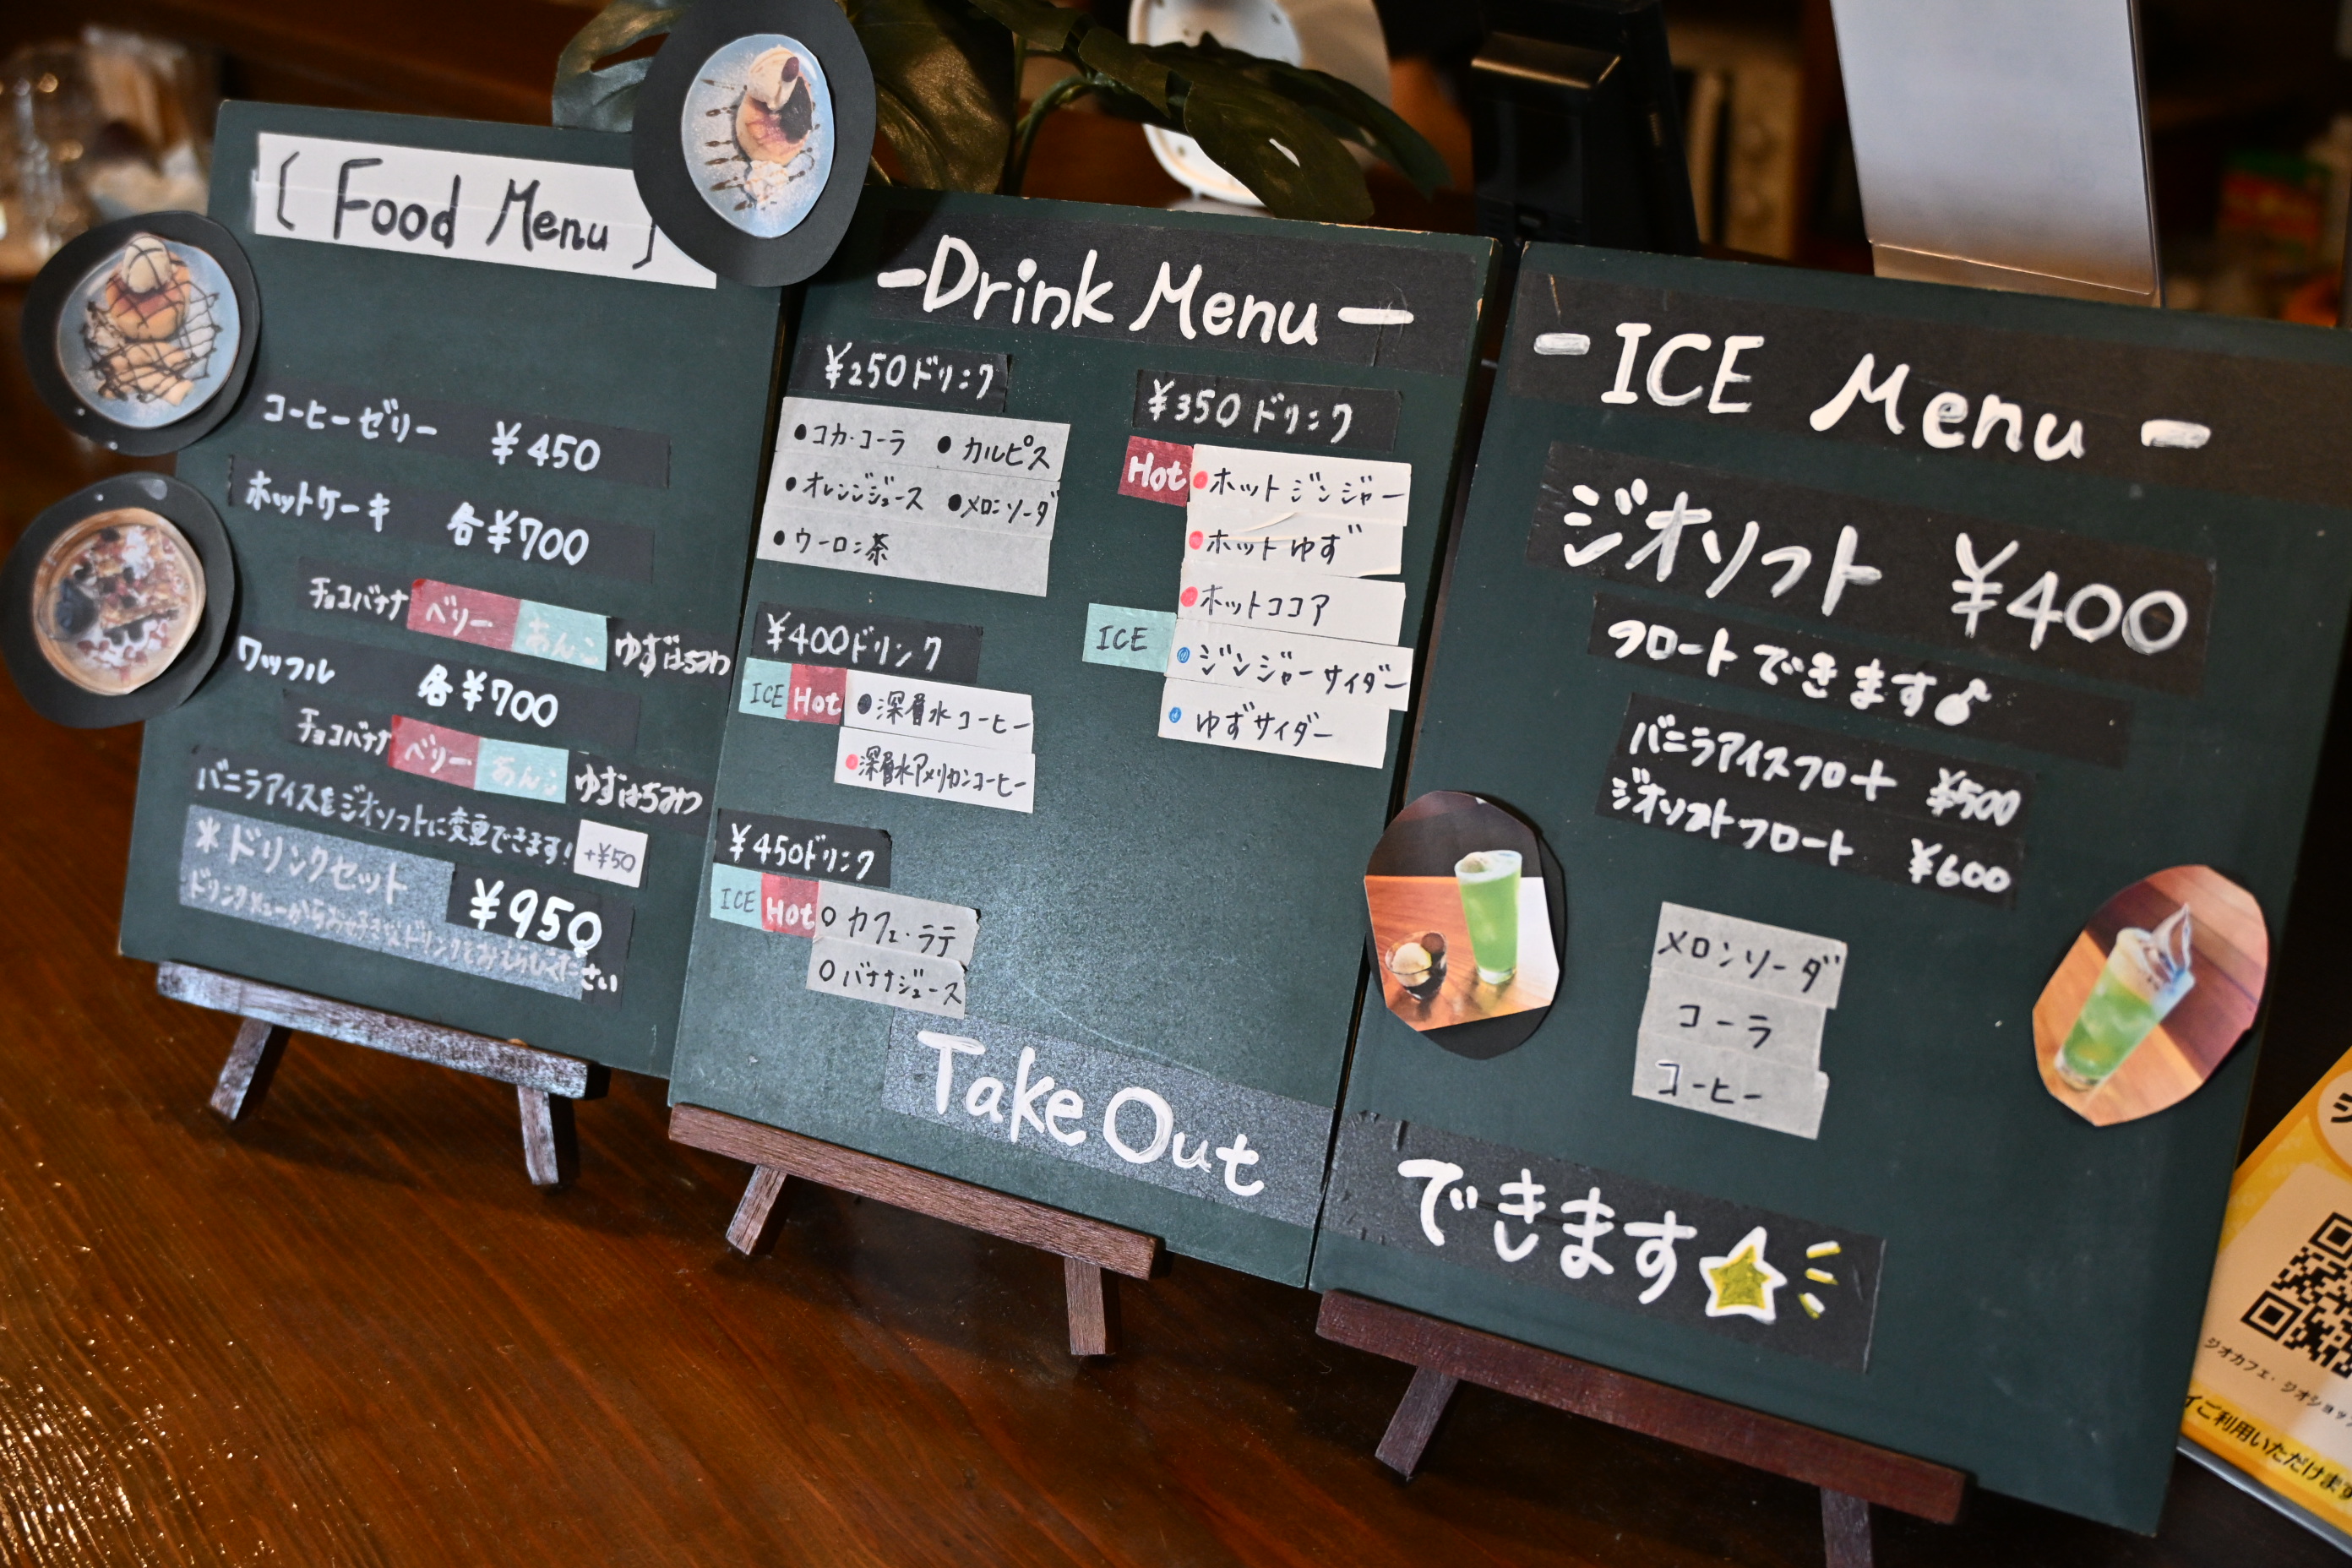 [ Food Menu ]
コーヒーゼリー ¥450
ホットケーキ 各¥700
チョコバナナ ベリー あんこ ゆずはちみつ
ワッフル 各¥700
チョコバナナ ベリー あんこ ゆずはちみつ
バニラアイスをジオソフトに変更できます! +¥50
*ドリンクセット ¥950
ドリンクメニューからお好きなドリンクをお選びください
-Drink Menu-
¥250ドリンク
•コカ・コーラ •カルピス
•オレンジジュース •メロンソーダ
•ウーロン茶
¥400ドリンク
ICE Hot •深層水コーヒー
•深層水アメリカンコーヒー
¥450ドリンク
ICE Hot ○カフェ・ラテ
○バナナジュース
¥350ドリンク
Hot •ホットジンジャー
•ホットゆず
•ホットココア
ICE •ジンジャーサイダー
•ゆずサイダー
Take Out
-ICE Menu-
ジオソフト ¥400
フロートできます♪
バニラアイスフロート ¥500
ジオソフトフロート ¥600
メロンソーダ
コーラ
コーヒー
できます☆
ジオカフェ・ジオショップ
ご利用いただけます